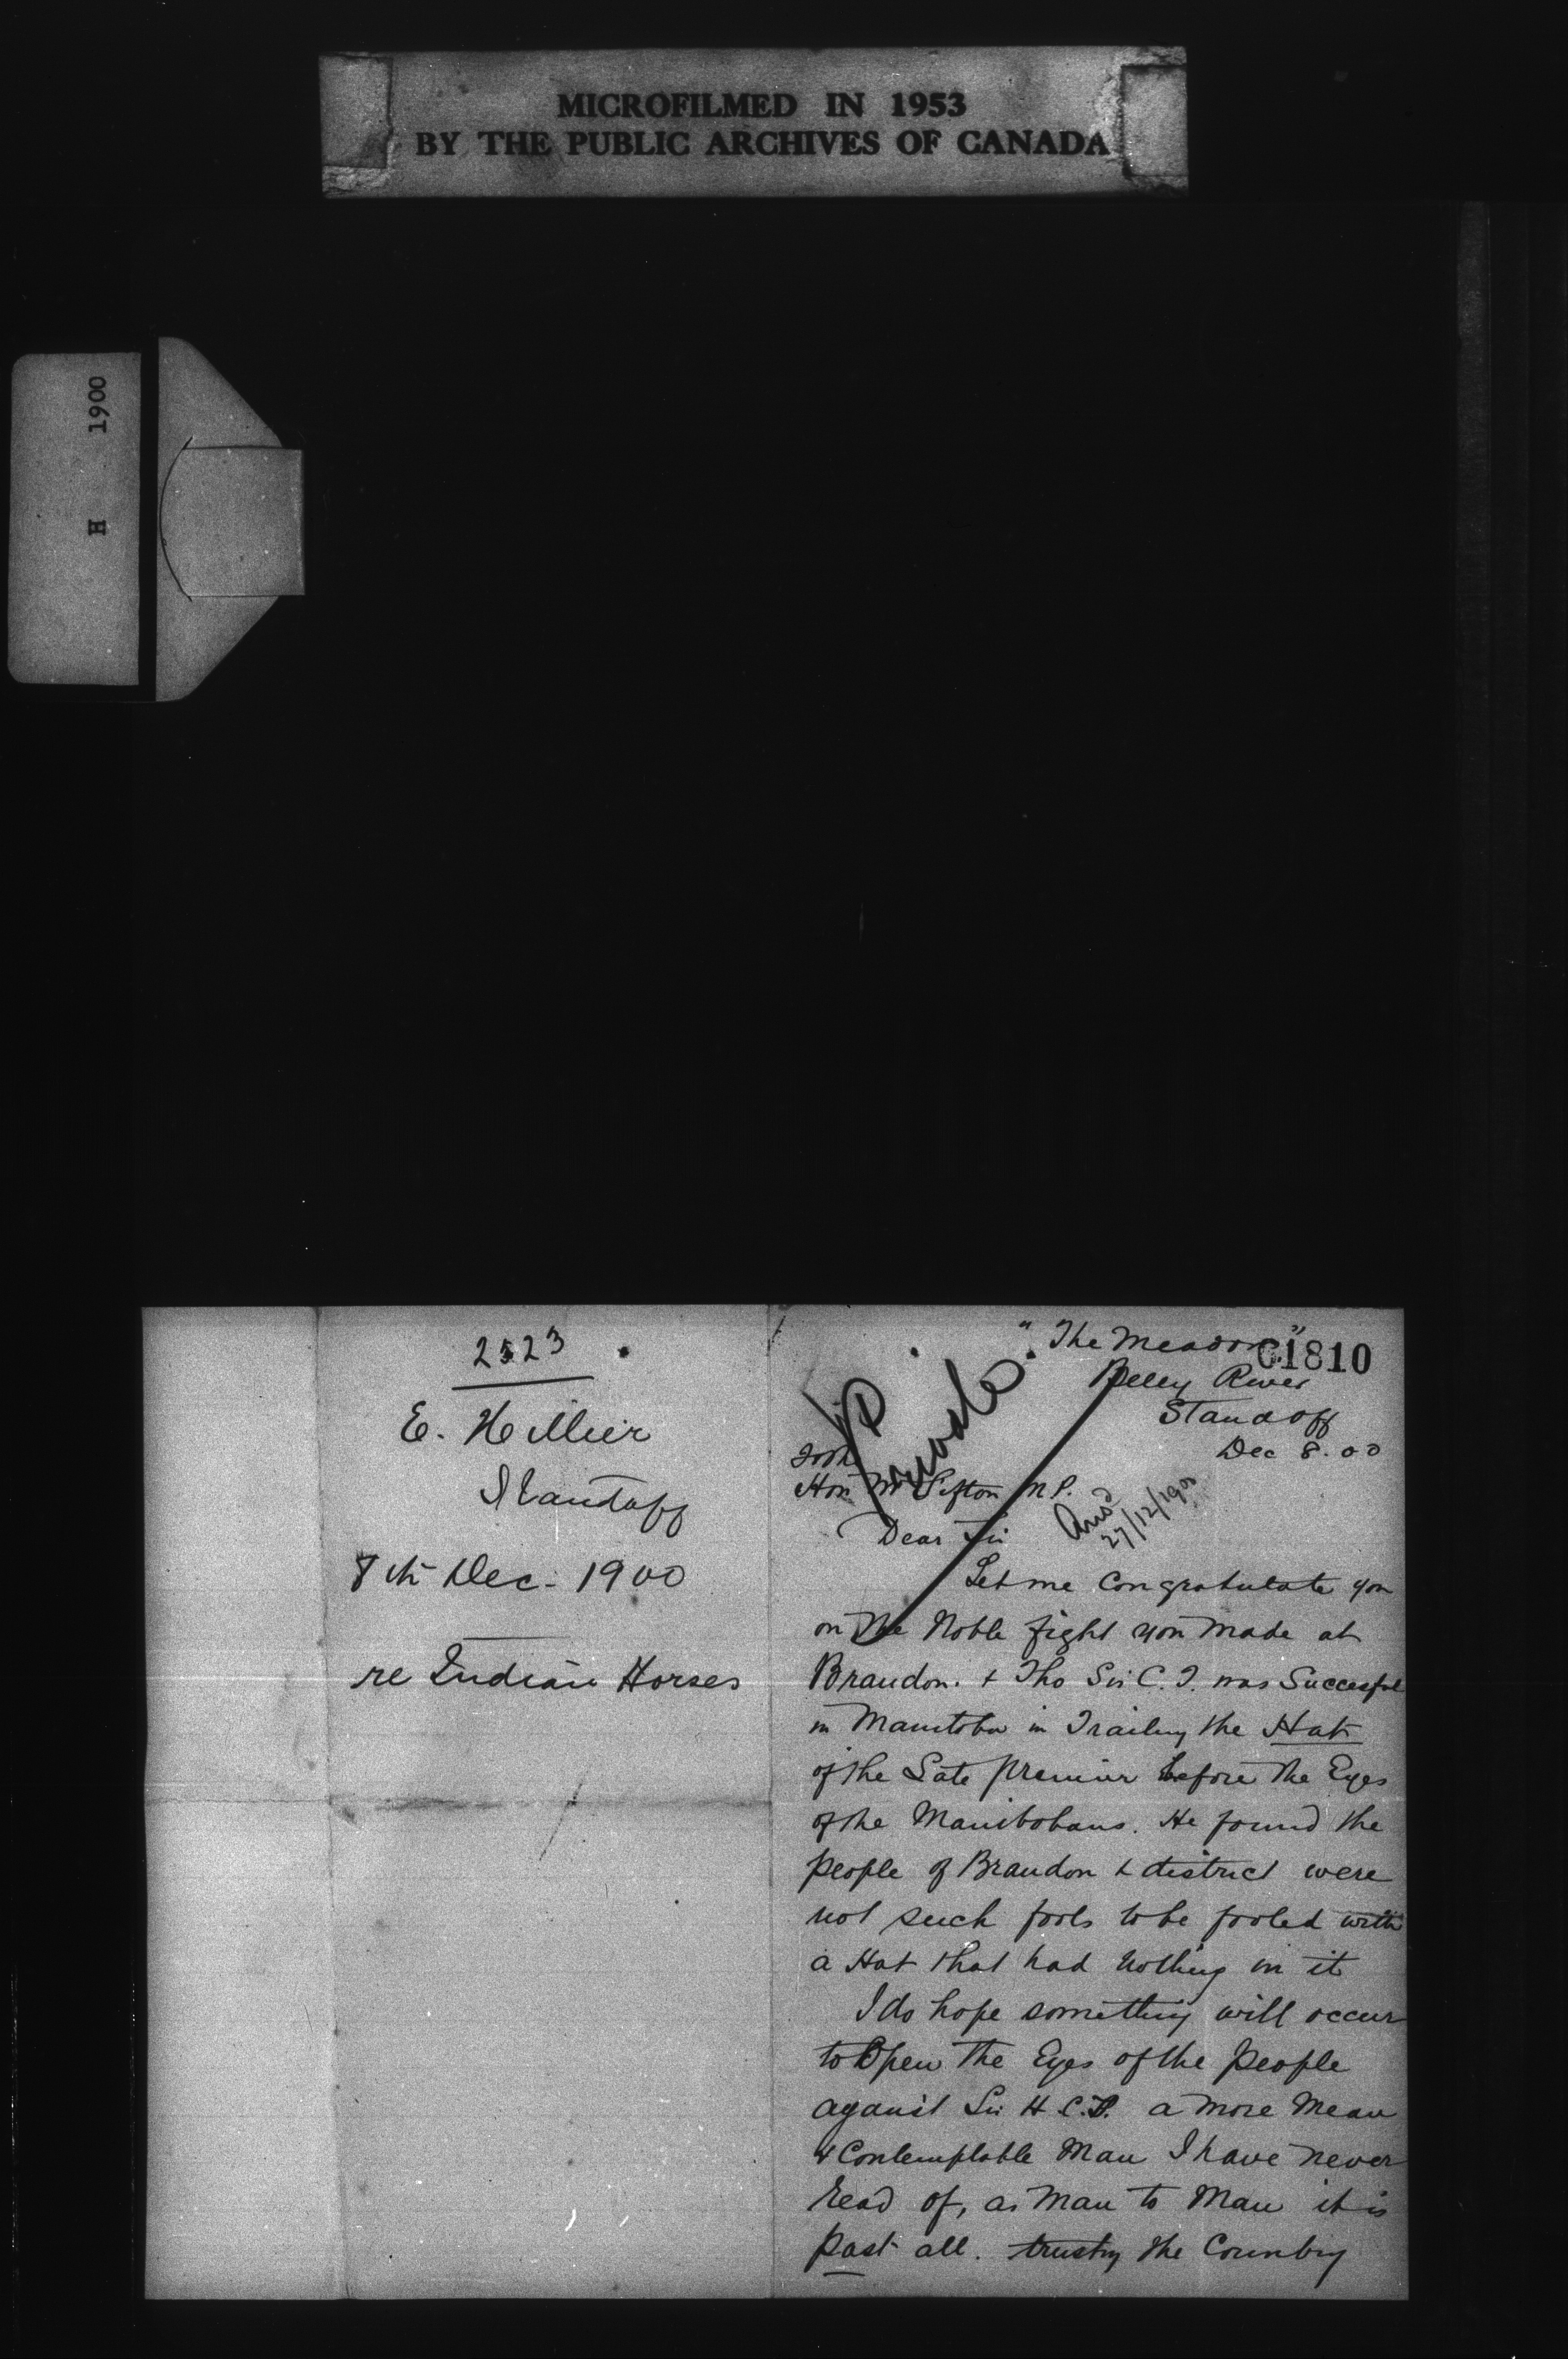 MICROFILMED IN 1953
BY THE PUBLIC ARCHIVES OF CANADA
H 1900
2523
E. Hillier
Standoff
8th Dec. 1900
re Indian Horses
"The Meadow"
C1810
Belly River
Standoff
Dec 8.00
Private
Hon Mr Sifton M.P.
Ansd
27/12/1900
Dear Sir
Let me Congratulate you
on The Noble fight you made at
Brandon. & Tho Sir C. T. was Succesful
in Manitoba in Trailing the Hat
of the Late Premier before the Eyes
of the Manitobans. He found the
people of Brandon & district were
not such fools to be fooled with
a Hat that had Nothing in it
I do hope something will occur
to Open The Eyes of the People
against Sir H. C. T. a more Mean
& Contemptable Man I have never
read of, as Man to Man it is
past all. trusting the Country